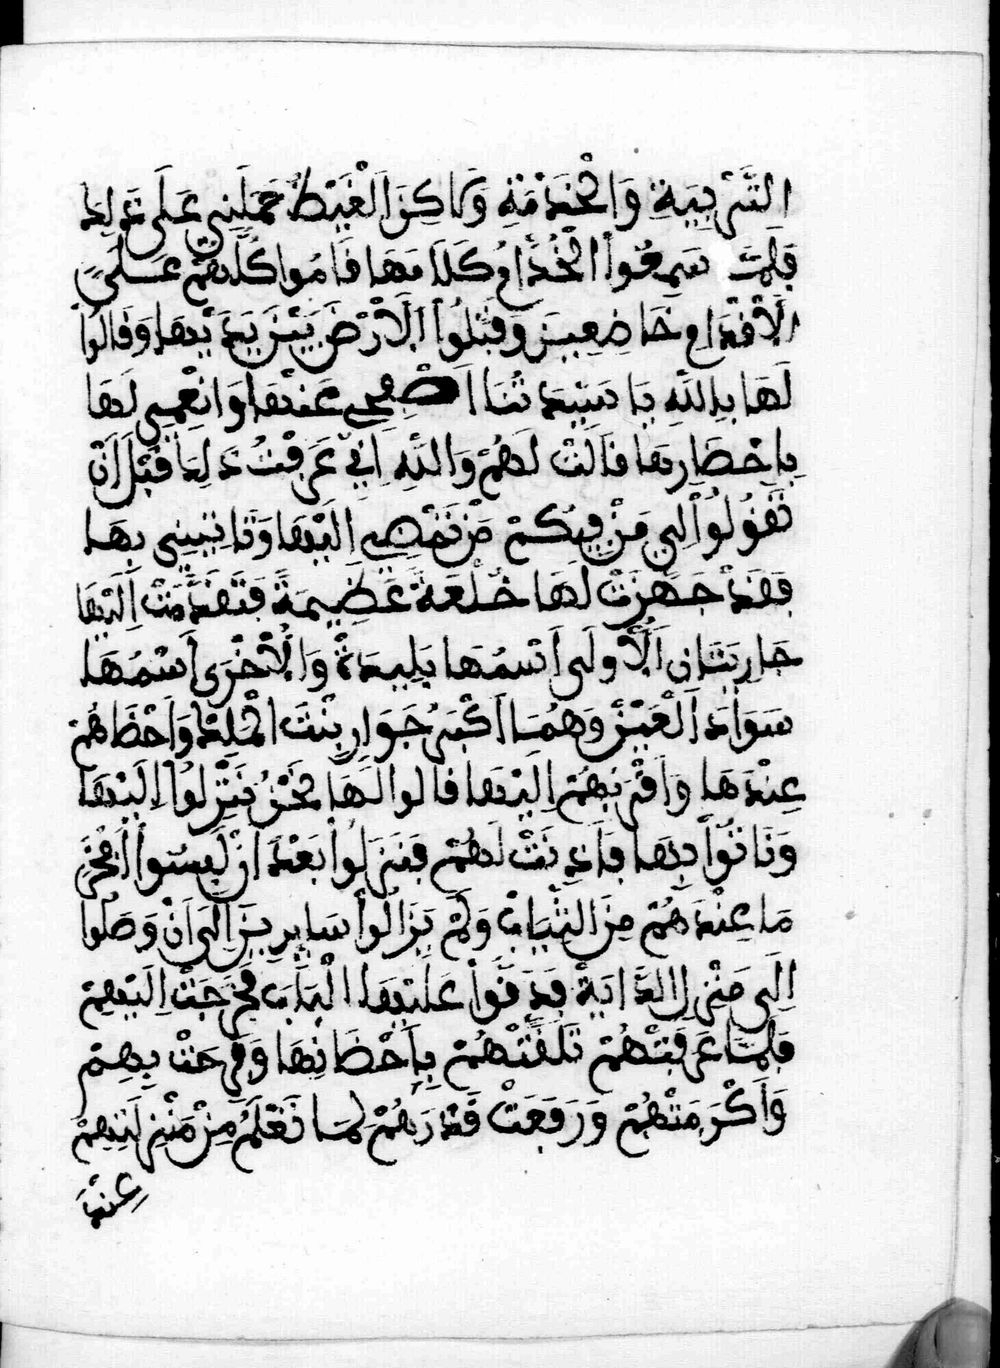 التَّرْبِيَة وَالْخَدْمَة وَلَاكِنَ الْغَيْظُ حَمَلَنِي عَلَى ذَلِكَ
فَلَمَّا سَمِعُواْ الْخُدَّامُ كَلَامَهَا قَامُوا كُلُّهُمْ عَلَى
الْأَقْدَامِ خَاضِعِينَ وَقَبَّلُواْ الْأَرْضَ بَيْنَ يَدَيْهَا وَقَالُواْ
لَهَا بِاللَّهِ يَا سَيِّدَتُنَا اصْفِحِي عَنْهَا وَانْعِمِي لَهَا
بِإِحْضَارِهَا قَالَتْ لَهُمْ وَاللَّهِ إِنِّي عَرَفْتُ ذَلِكَ قَبْلَ أَنْ
تَقُولُواْ لِي مَنْ فِيكُمْ مَنْ تَمْضِي إِلَيْهَا وَتَاتِينِي بِهَا
فَقَدْ جَهَّزَتْ لَهَا خُلْعَةً عَظِيمَةً فَتَقَدَّمَتْ إِلَيْهَا
جَارِيَتَانِ الْأُولَى اسْمُهَا بَلِيدَةٌ وَالْأُخْرَى اسْمُهَا
سَوَادَ الْعَيْنِ وَهُمَا أَكْبَرُ جَوَارِ بِنْتَ الْمَلِكْ وَأَحْظَاهُمْ
عِنْدَهَا وَأَقْرَبُهُمْ إِلَيْهَا قَالُوا لَهَا نَحْنُ نَنْزِلُواْ إِلَيْهَا
وَنَاتُواْ بِهَا فَأَذِنَتْ لَهُمْ فَنَزَلُواْ بَعْدَ أَنْ لَبِسُواْ أَفْخَرَ
مَا عِنْدَهُمْ مِنَ الثِّيَابْ وَلَمْ يَزَالُواْ سَايِرِينَ إِلَى أَنْ وَصَلُواْ
إِلَى مَنْزِلِ الدَّايَةْ فَدَقُّواْ عَلَيْهَا الْبَابَ فَخَرَجَتْ إِلَيْهِمْ
فَلَمَّا عَرَفَتْهُمْ تَلَقَّتْهُمْ بِأَحْضَانِهَا وَفَرِحَتْ بِهِمْ
وَأَكْرَمَتْهُمْ وَرَفَعَتْ قَدْرَهُمْ لِمَا تَعْلَمُ مِنْ مَنْزِلَتِهِمْ
عِنْدَ